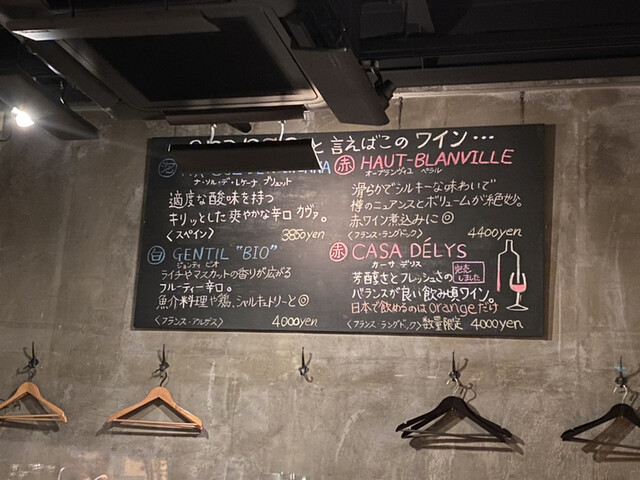 と言えばこのワイン…
泡
ナ・ソル・デ・レケーナ ブリュット
適度な酸味を持つ
キリッとした爽やかな辛口カヴァ。
〈スペイン〉 3850yen
白 GENTIL "BIO"
ジョンティ ビオ
ライチやマスカットの香りが広がる
フルーティー辛口。
魚介料理や鶏、シャルキュトリーと◎
〈フランス・アルザス〉 4000yen
赤 HAUT-BLANVILLE
オー・ブランヴィユ ペラル
滑らかでシルキーな味わいで
樽のニュアンスとボリュームが絶妙。
赤ワイン煮込みに◎
〈フランス・ラングドック〉 4400yen
赤 CASA DÉLYS
カーサ デリス
芳醇さとフレッシュさの
完売しました
バランスが良い飲み頃ワイン。
日本で飲めるのはorangeだけ
〈フランス・ラングドック〉 数量限定 4000yen